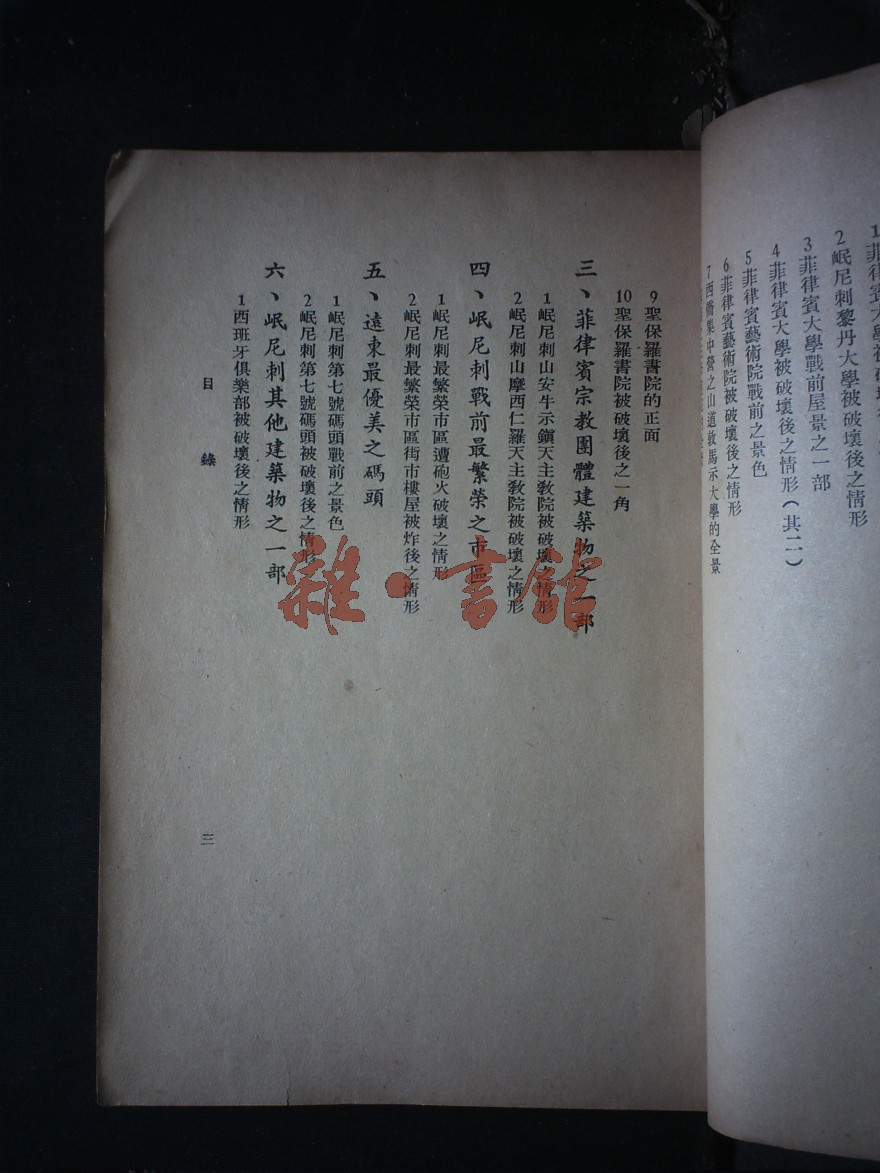 2岷尼刺黎丹大學被破壞後之情形
3菲律賓大學戰前屋景之一部
4菲律賓大學被破壞後之情形(其二)
5菲律賓藝術院戰前之景色
6菲律賓藝術院被破壞後之情形
7西僑集中營之山道敎馬示大學的全景
9聖保羅書院的正面
10聖保羅書院被破壞後之一角
三、菲律賓宗教團體建築物之一部
1岷尼刺山安牛示鎭天主敎院被破壞之情形
2岷尼刺山摩西仁羅天主敎院被破壞之情形
四、岷尼刺戰前最繁榮之市區
1岷尼刺最繁榮市區遭砲火破壞之情形
2岷尼刺最繁榮市區街市樓屋被炸後之情形
五、遠東最優美之碼頭
1岷尼刺第七號碼頭戰前之景色
2岷尼刺第七號碼頭被破壞後之情形
六、岷尼刺其他建築物之一部
1西班牙俱樂部被破壞後之情形
目錄
三
雜·書館